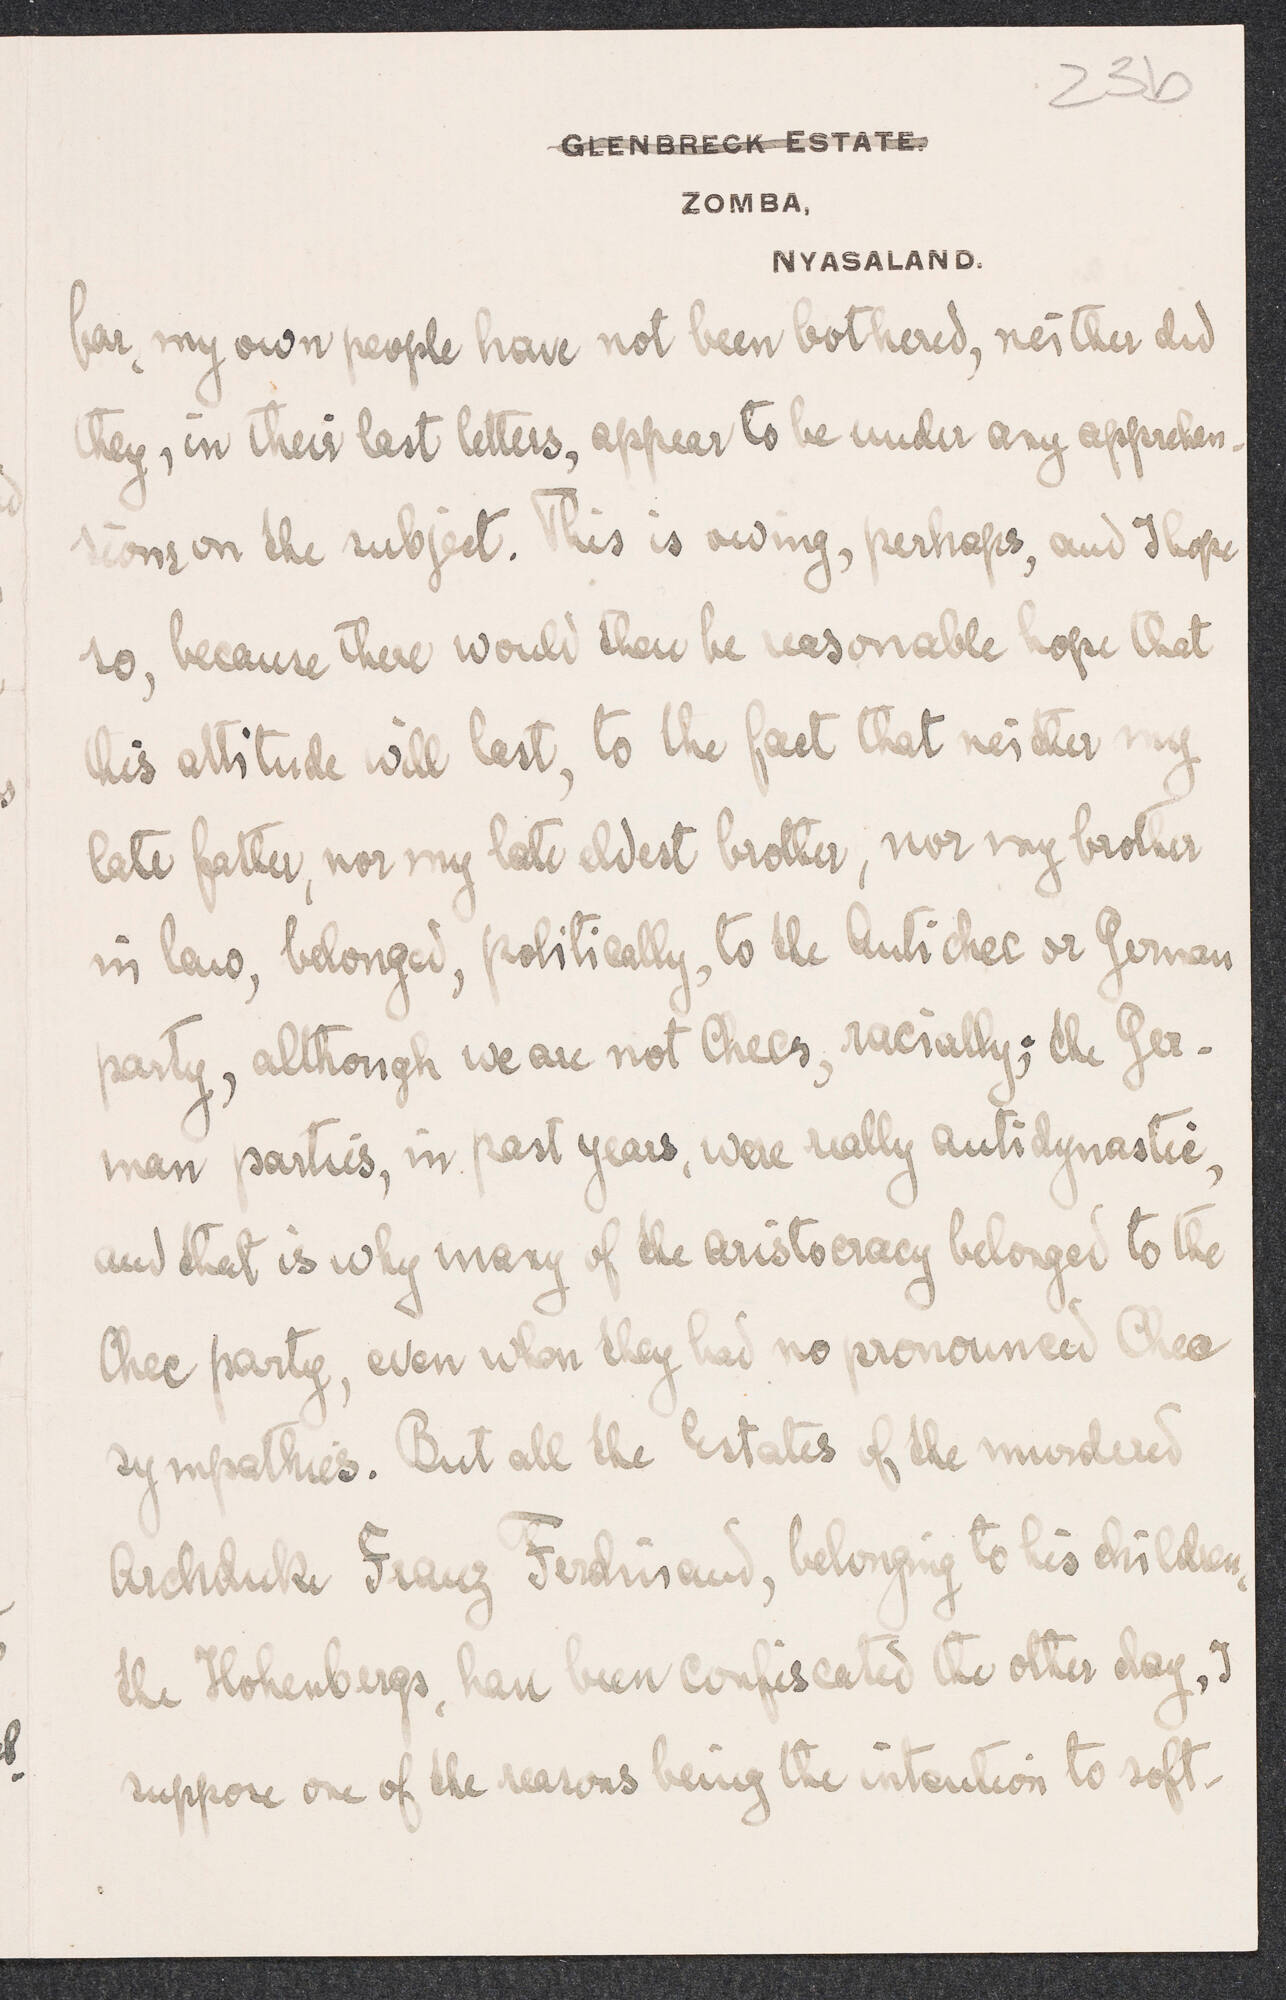 23b
GLENBRECK ESTATE.
ZOMBA,
NYASALAND.
far, my own people have not been bothered, neither did
they, in their last letters, appear to be under any apprehen-
sions on the subject. This is owing, perhaps, and I hope
so, because there would then be reasonable hope that
this attitude will last, to the fact that neither my
late father, nor my late eldest brother, nor my brother
in law, belonged, politically, to the Antichec or German
party, although we are not Checs, racially; the Ger-
man parties, in past years, were really antidynastic,
and that is why many of the aristocracy belonged to the
Chec party, even when they had no pronounced Chec
sympathies. But all the Estates of the murdered
Archduke Franz Ferdinand, belonging to his children,
the Hohenbergs, have been confiscated the other day, I
suppose one of the reasons being the intention to soft-